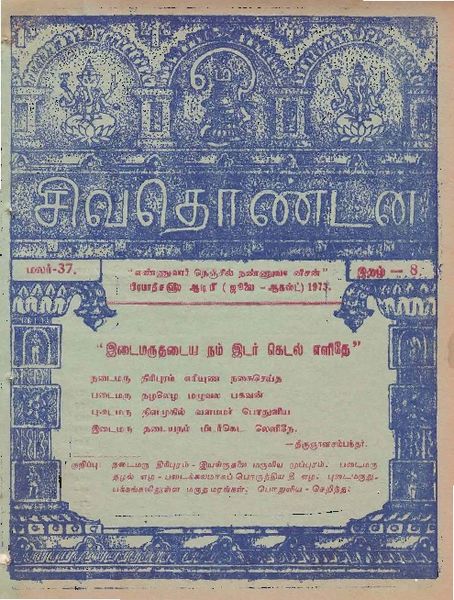 சிவதொண்டன்
மலர்-37.
"எண்ணுவார் நெஞ்சில் நண்ணுவன் ஈசன்"
இதழ் — 8.
பிரமாதீச ஆடி ( ஜூலை — ஆகஸ்ட் ) 1973.
"இடைமருதடைய நம் இடர் கெடல் எளிதே"
நடைமரு திரிபுரம் எரியுண நகைசெய்த
படைமரு தழலெழ மழுவல பகவன்
புடைமரு திளமுகில் வளமமர் பொதுளிய
இடைமரு தடையநம் மிடர்கெட லெளிதே.
—திருஞானசம்பந்தர்.
குறிப்பு: நடைமரு திரிபுரம் - இயங்குதலை மருவிய முப்புரம். படைமரு
தழல் எழ - படைக்கலமாகப் பொருந்திய தீ எழ. புடைமருது-
பக்கங்களிலுள்ள மருத மரங்கள். பொதுளிய - செறிந்த.